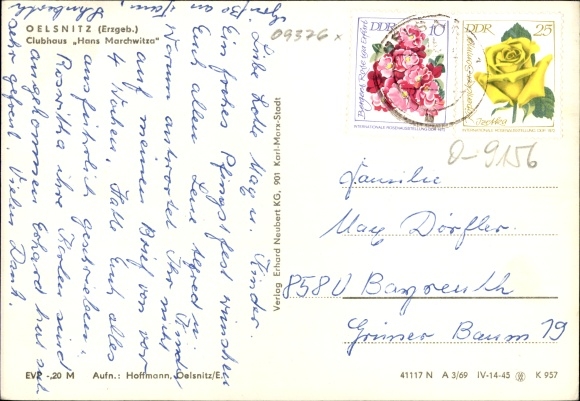 OELSNITZ (Erzgeb.)
Clubhaus „Hans Marchwitza"
09376 x
Liebe Lotte, Max u. Kinder.
Ein frohes Pfingstfest wünschen
Euch allen Lene Alfred u. Kinder
Warum antwortet Ihr nicht
auf meinen Brief von vor
4 Wochen. Hatte Euch alles
ausführlich geschrieben.
Roswitha ihre Karten sind
angekommen Erhard hat sich
sehr gefreut. Vielen Dank.
EVP -,20 M Aufn.: Hoffmann, Oelsnitz/E.
Verlag Erhard Neubert KG, 901 Karl-Marx-Stadt
DDR 10
INTERNATIONALE ROSENAUSSTELLUNG DDR 1972
DDR 25
INTERNATIONALE ROSENAUSSTELLUNG DDR 1972
D-9156
Familie
Max Dörfler
8580 Bayreuth
Grüner Baum 19
41117 N A 3/69 IV-14-45 K 957